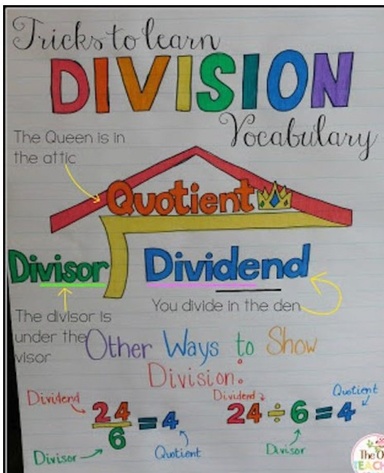 Tricks to learn
DIVISION
Vocabulary
The Queen is in
the attic
Quotient
Divisor
Dividend
You divide in the den
The divisor is
under the
visor
Other Ways to Show
Division:
Dividend
24
6
= 4
Divisor
Quotient
Dividend
Quotient
24 ÷ 6 = 4
Divisor
The